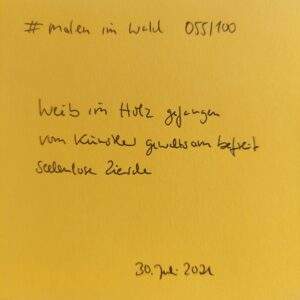 # malen im Wald 055/100
Weib im Holz gefangen
vom Künstler gewaltsam befreit
seelenlose Zierde
30. Juli 2021